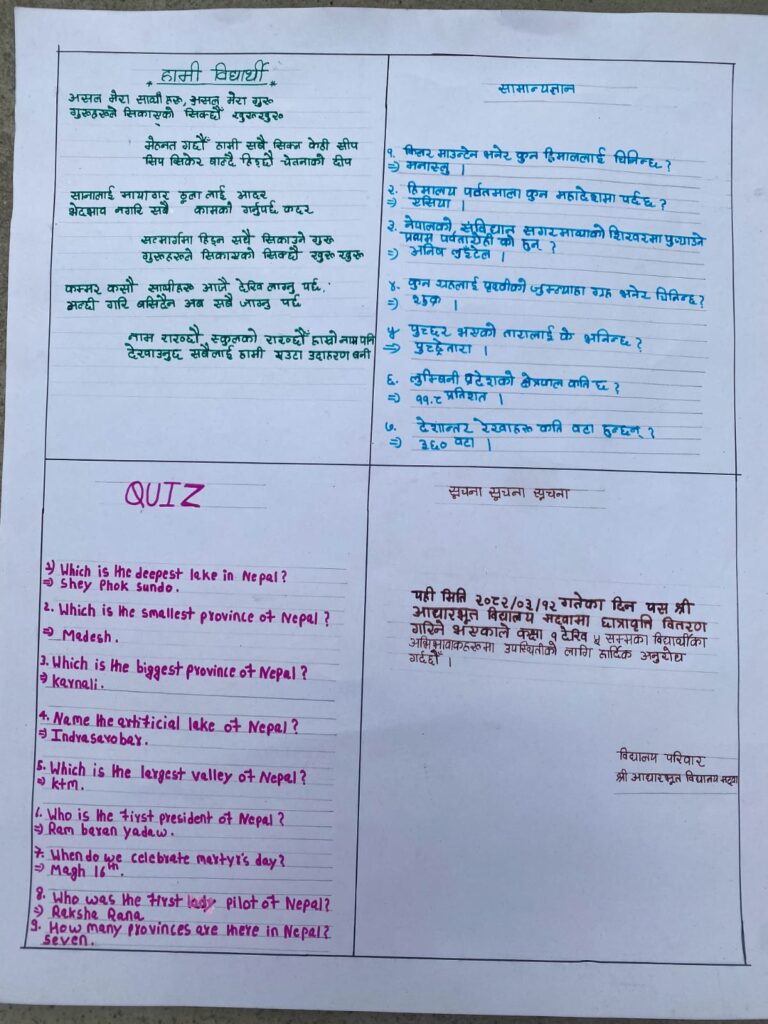 हामी विद्यार्थी
असल मेरा साथीहरू, असल मेरा गुरु
गुरुहरूले सिकाएको सिक्छौँ खुरुखुरु
मेहनत गर्छौँ हामी सबै सिक्न केही सीप
सिप सिकेर बाल्दै हिड्छौँ चेतनाको दीप
सानालाई मायागर ठूलालाई आदर
भेदभाव नगरि सबै कामको गर्नुपर्छ कदर
सत्मार्गमा हिड्न सधै सिकाउने गुरु
गुरुहरूले सिकाएको सिक्छौँ खुरु खुरु
कम्मर कसौँ साथीहरू आजै देखि लाग्नु पर्छ,
अल्छी गरि बसिँदैन अब सबै जाग्नु पर्छ
नाम राख्छौँ स्कुलको राख्छौँ हाम्रो नाम पनि
देखाउनुछ सबैलाई हामी एउटा उदाहरण बनी
सामान्यज्ञान
१. किलर माउन्टेन भनेर कुन हिमाललाई चिनिन्छ?
⇒ मनास्लु ।
२. हिमालय पर्वतमाला कुन महादेशमा पर्दछ ?
⇒ एसिया ।
३. नेपालको, सुविख्यात सगरमाथाको शिखरमा पुर्‍याउने
प्रथम पर्वतारोही को हुन् ?
⇒ अनिष लुइटेल ।
४. कुन ग्रहलाई पृथ्वीको जुम्ल्याहा ग्रह भनेर चिनिन्छ?
⇒ शुक्र ।
५ पुच्छर भएको तारालाई के भनिन्छ ?
⇒ पुच्छ्रेतारा ।
६. लुम्बिनी प्रदेशको क्षेत्रफल कति छ ?
⇒ ११.८ प्रतिशत ।
७. देशान्तर रेखाहरू कति वटा हुन्छन् ?
⇒ ३६० वटा ।
QUIZ
1) Which is the deepest lake in Nepal?
⇒ Shey Phok sundo.
2. Which is the smallest province of Nepal?
⇒ Madesh.
3. Which is the biggest province of Nepal?
⇒ Karnali.
4. Name the artificial lake of Nepal?
⇒ Indrasarobar.
5. Which is the largest valley of Nepal?
⇒ ktm.
6. Who is the first president of Nepal?
⇒ Ram baran yadaw.
7. When do we celebrate martyr's day?
⇒ Magh 16th.
8. Who was the first lady pilot of Nepal?
⇒ Raksha Rana
9. How many provinces are there in Nepal?
seven.
सूचना सूचना सूचना
यही मिति २०८२/०३/१२ गतेका दिन यस श्री
आधारभूत विद्यालय सद्वामा छात्रावृत्ति वितरण
गरिने भएकाले कक्षा १ देखि ५ सम्मका विद्यार्थीका
अभिभावकहरूमा उपस्थितीको लागि हार्दिक अनुरोध
गर्दछौँ ।
विद्यालय परिवार
श्री आधारभूत विद्यालय सद्वा